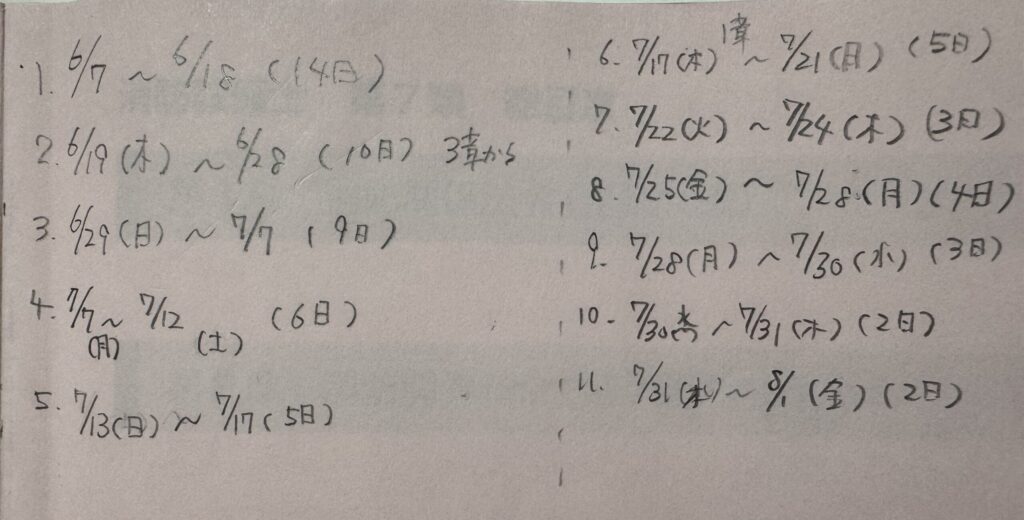 1. 6/7 ~ 6/18 (14日)
2. 6/19(木) ~ 6/28 (10日) 3章から
3. 6/29(日) ~ 7/7 (9日)
4. 7/7 ~ 7/12 (6日)
(月) (土)
5. 7/13(日) ~ 7/17(5日)
6. 7/17(木) ~ 7/21(月) (5日)
7. 7/22(火) ~ 7/24(木) (3日)
8. 7/25(金) ~ 7/28(月)(4日)
9. 7/28(月) ~ 7/30(水) (3日)
10. 7/30 水 ~ 7/31(木)(2日)
11. 7/31(木) ~ 8/1 (金)(2日)